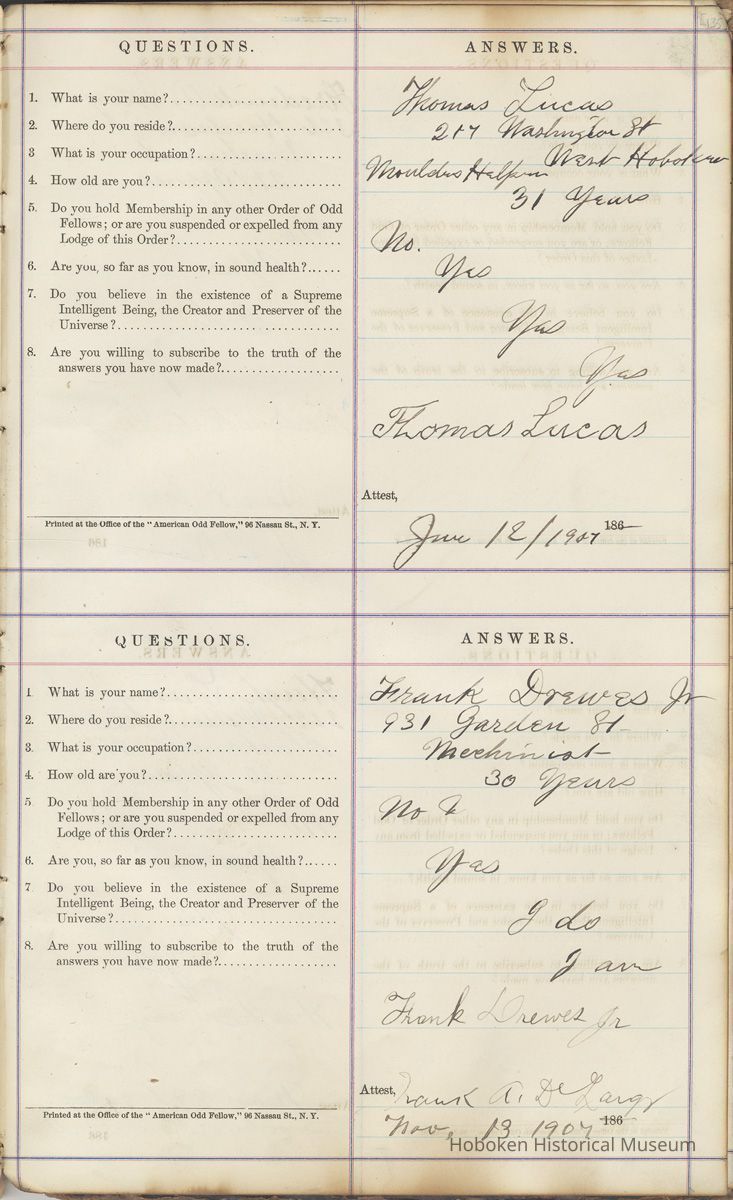 QUESTIONS.
ANSWERS.
1. What is your name?
Thomas Lucas
2. Where do you reside?
217 Washington St
West Hoboken
3 What is your occupation?
Moulders Helper
4. How old are you?
31 Years
5. Do you hold Membership in any other Order of Odd
Fellows; or are you suspended or expelled from any
Lodge of this Order?
No.
6. Are you, so far as you know, in sound health?
Yes
7. Do you believe in the existence of a Supreme
Intelligent Being, the Creator and Preserver of the
Universe?
Yes
8. Are you willing to subscribe to the truth of the
answers you have now made?
Yes
Thomas Lucas
Attest,
Printed at the Office of the "American Odd Fellow," 96 Nassau St., N. Y.
June 12/1907 186
QUESTIONS.
ANSWERS.
1 What is your name?
Frank Drewes Jr
2. Where do you reside?
931 Garden St
3. What is your occupation?
Mechinist
4. How old are you?
30 Years
5 Do you hold Membership in any other Order of Odd
Fellows; or are you suspended or expelled from any
Lodge of this Order?
No
6. Are you, so far as you know, in sound health?
Yes
7 Do you believe in the existence of a Supreme
Intelligent Being, the Creator and Preserver of the
Universe?
I do
8. Are you willing to subscribe to the truth of the
answers you have now made?
I am
Frank Drewes Jr
Attest, Frank A. De
Printed at the Office of the "American Odd Fellow," 96 Nassau St., N. Y.
Nov, 13 1907 186
Hoboken Historical Museum